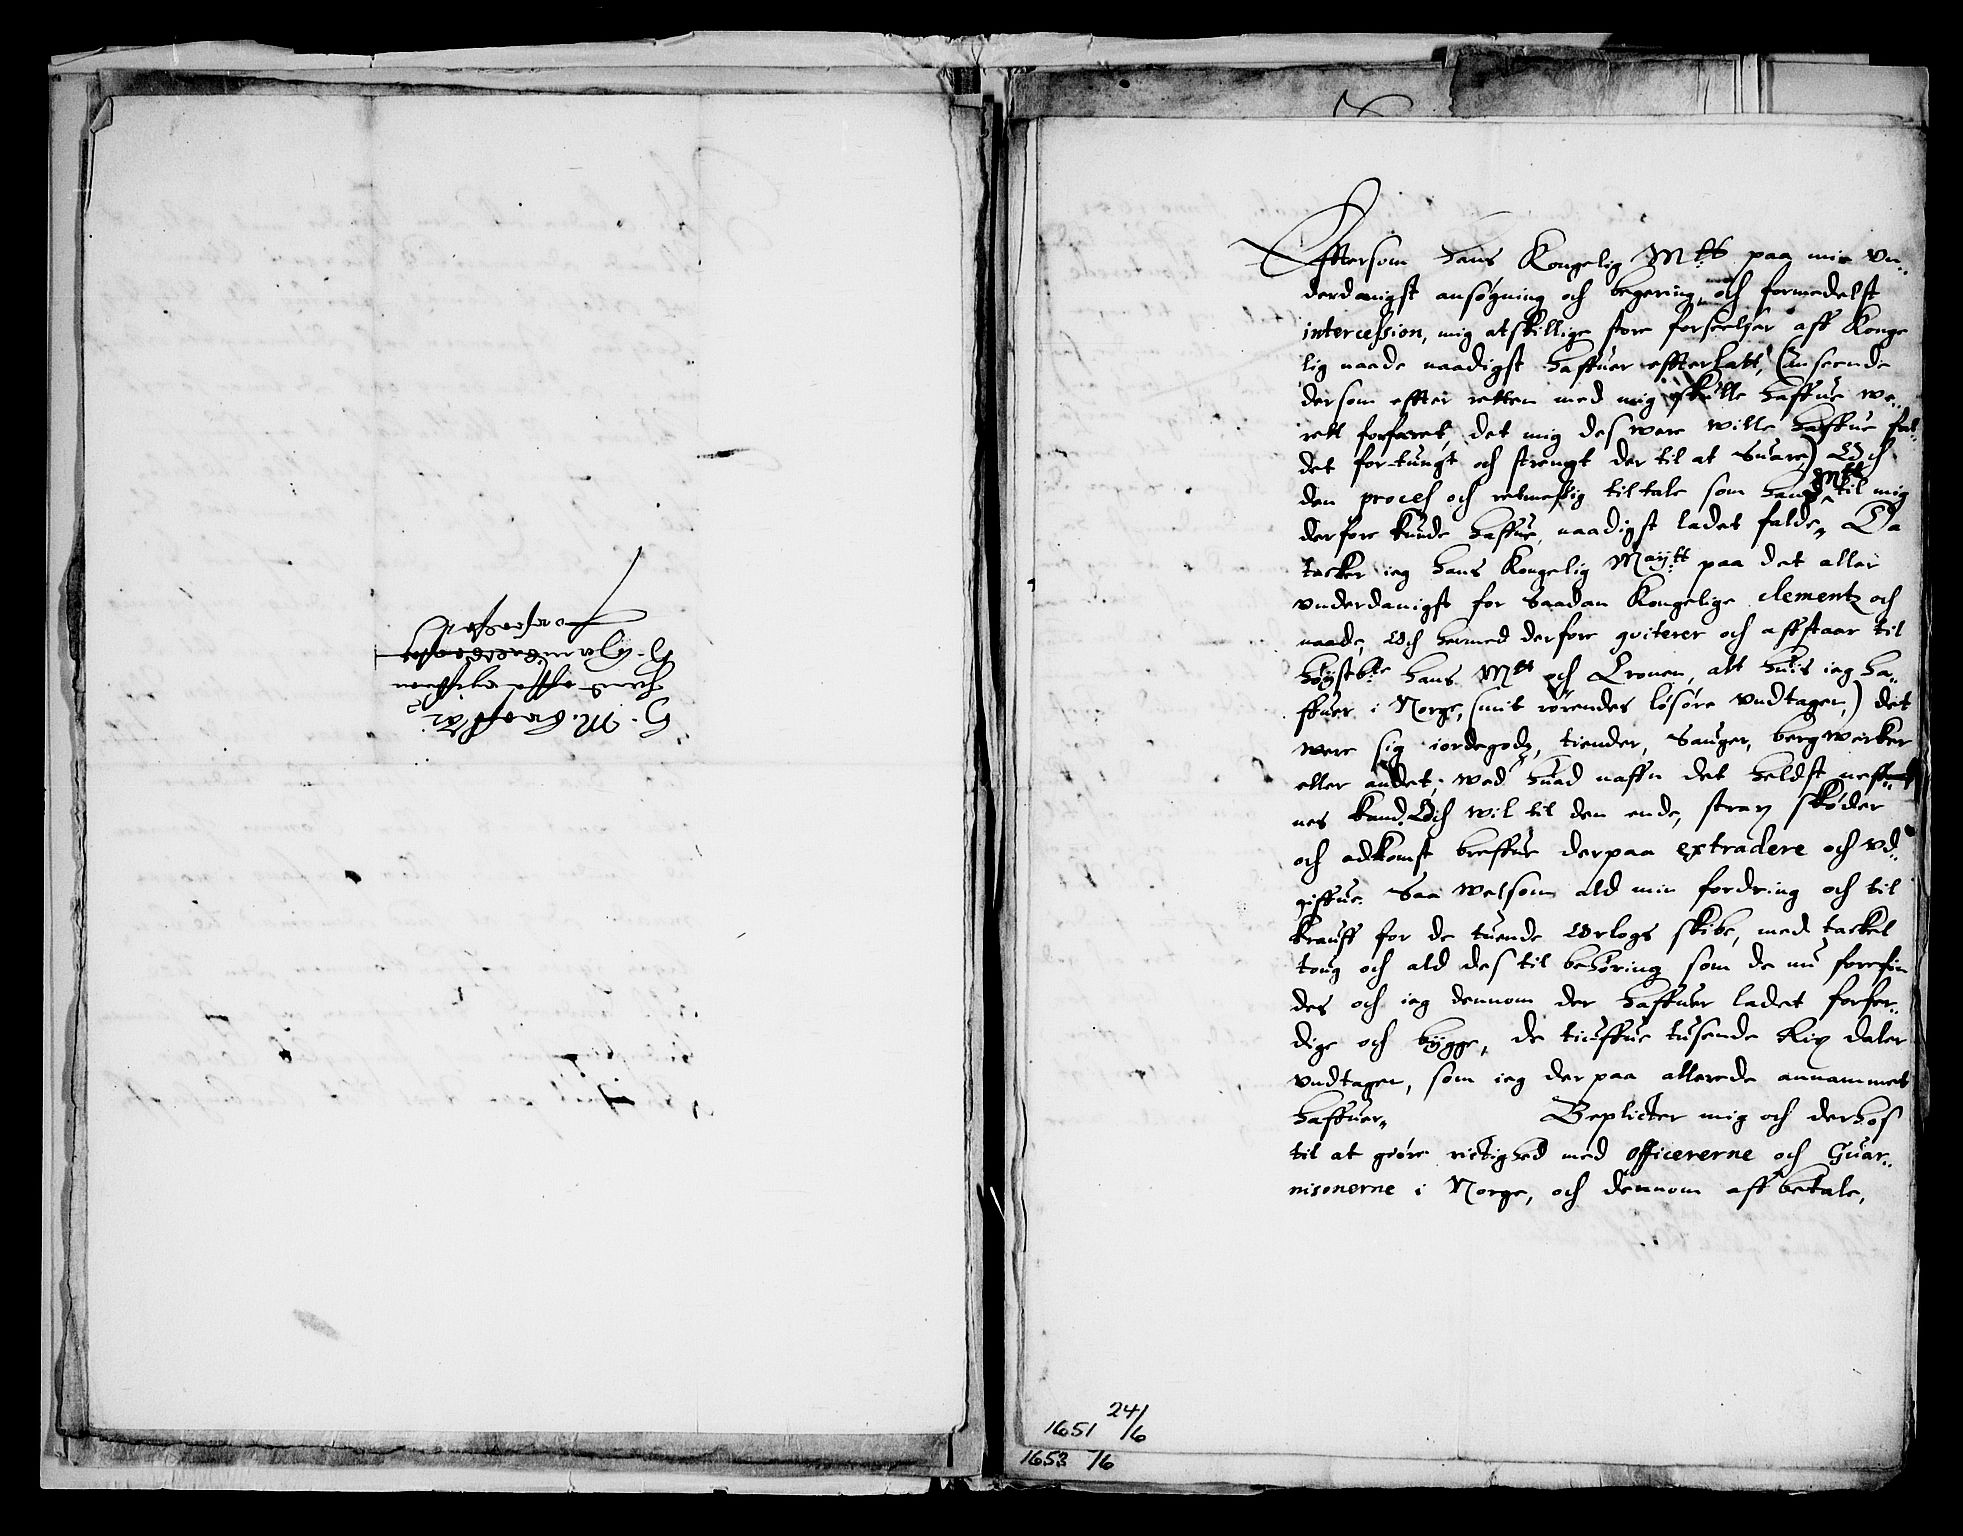 Efftersom Hans Kongelig Mtts paa min vn-
derdanigst ansøgning och begering och formedelst
intercession, mig atskillige store forseelser aff Konge
lig naade naadigst haffuer effterlatt, (anseende
dersom effter retten med mig skulle haffue we-
rett forfaret, det mig des were wille haffue fal-
det for tungt och strengt der til at Suare,) Och
den proces och retmessig tiltale som hans Mtt til mig
derfore kunde haffue, naadigst ladet falde, Da
tacker ieg Hans Kongelig Maÿtt paa det aller
vnderdanigst for Saadan Kongelige clementz och
naade, Och hermed derfore qviterer och affstaar til
Høÿstbte Hans Mtt och Cronen, alt huis ieg ha-
ffuer i Norge, (mit rørendes løsøre Undtagen,) det
were sig iordegodz, tiender, Sauger, bergwerker
eller andet, wed huad naffn det heldst neff-
nes kand. Och wil til den ende, strax skøder
och adkomst breffue derpaa extradere och vd-
giffue. Saa welsom ald min fordring och til
krauff for de tuende Orlogs skibe, med tackel
toug och ald des til behøring som de nu forefin
des och ieg dennom der haffuer ladet forfer-
dige och bÿgge, de tiuffue tusende Rix daler
vndtagen, som ieg derpaa allerede annammet
haffuer, Beplicter mig och derhos
til at giøre rictighed med officererne och Guar-
nisonerne i Norge, och dennom aff betale,
1651 24/6
1652 /6